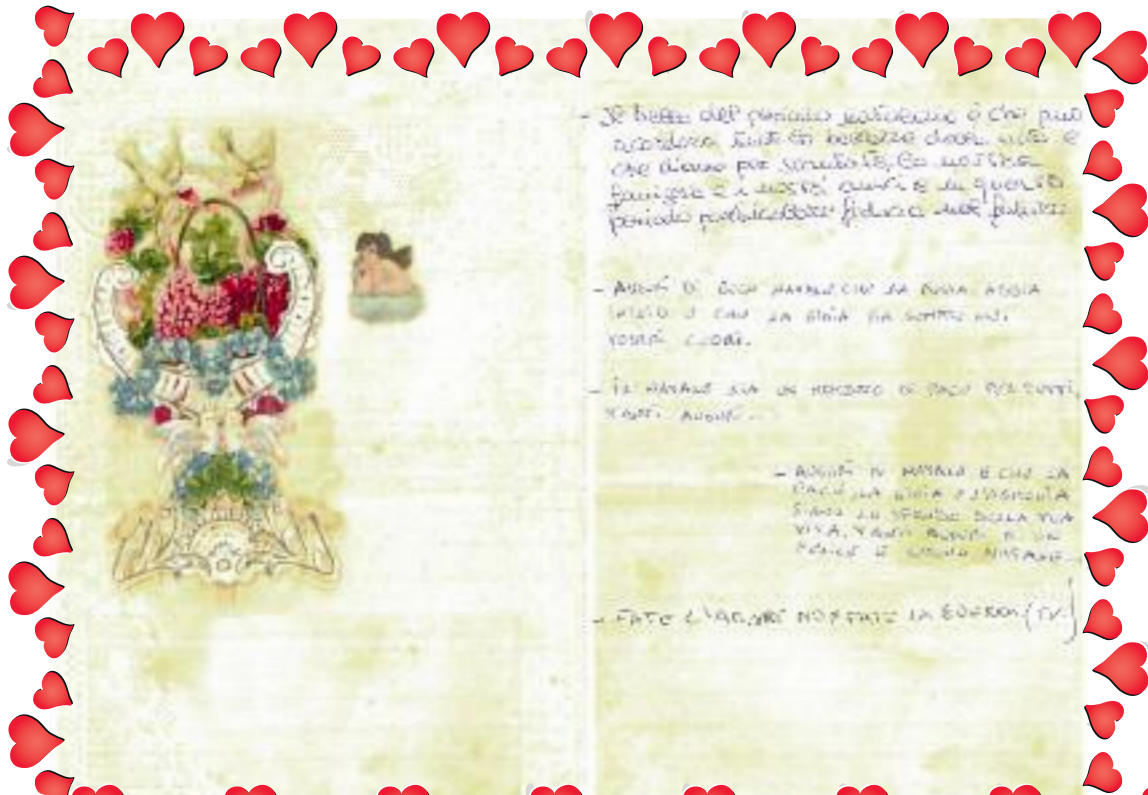 - Il bello del periodo natalizio è che può
accadere tutte le bellezze della vita e
che diamo per scontate, la nostra
famiglia e i nostri amici e in questo
periodo fiducia nel futuro
- AUGURI DI BUON NATALE CHE LA
INIZIO E CHE LA GIOIA SIA SEMPRE NEI
VOSTRI CUORI.
- IL NATALE SIA UN MOMENTO DI PACE PER TUTTI,
TANTI AUGURI..
- AUGURI DI NATALE E CHE LA
PACE, LA GIOIA E L'ARMONIA
SIANO LO SFONDO DELLA TUA
VITA. TANTI AUGURI DI UN
FELICE E NATALE.
- FATE L'AMORE NON FATE LA GUERRA (TV)